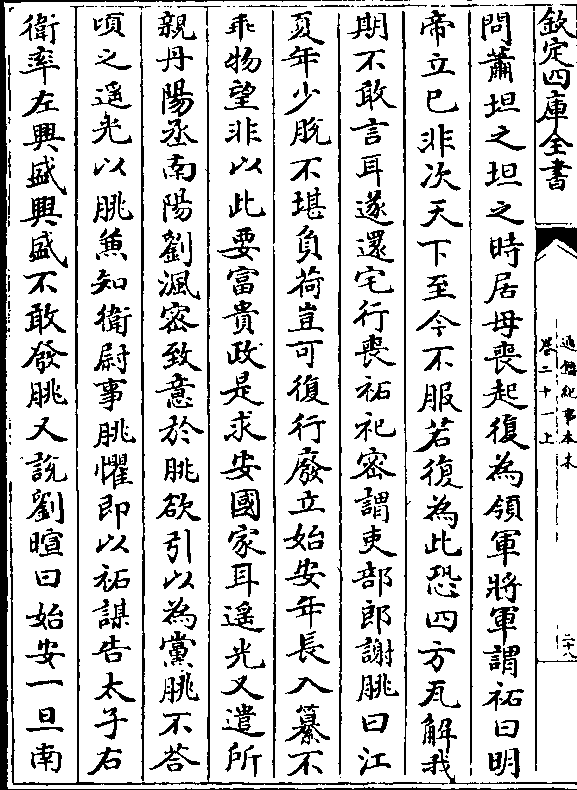 欽定四庫全書
通鑑紀事本末
卷二十一上
二十八
問蕭坦之坦之時居母喪起復為領軍將軍謂祏曰明
帝立已非次天下至今不服若復為此恐四方瓦解我
期不敢言耳遂還宅行喪祏祀密謂吏部郎謝朓曰江
夏年少脫不堪負荷豈可復行廢立始安年長入纂不
乖物望非以此要富貴政是求安國家耳遥光又遣所
親丹陽丞南陽劉渢密致意於朓欲引以為黨朓不答
頃之遥光以朓兼知衛尉事朓懼即以祏謀告太子右
衛率左興盛興盛不敢發朓又說劉暄曰始安一旦南